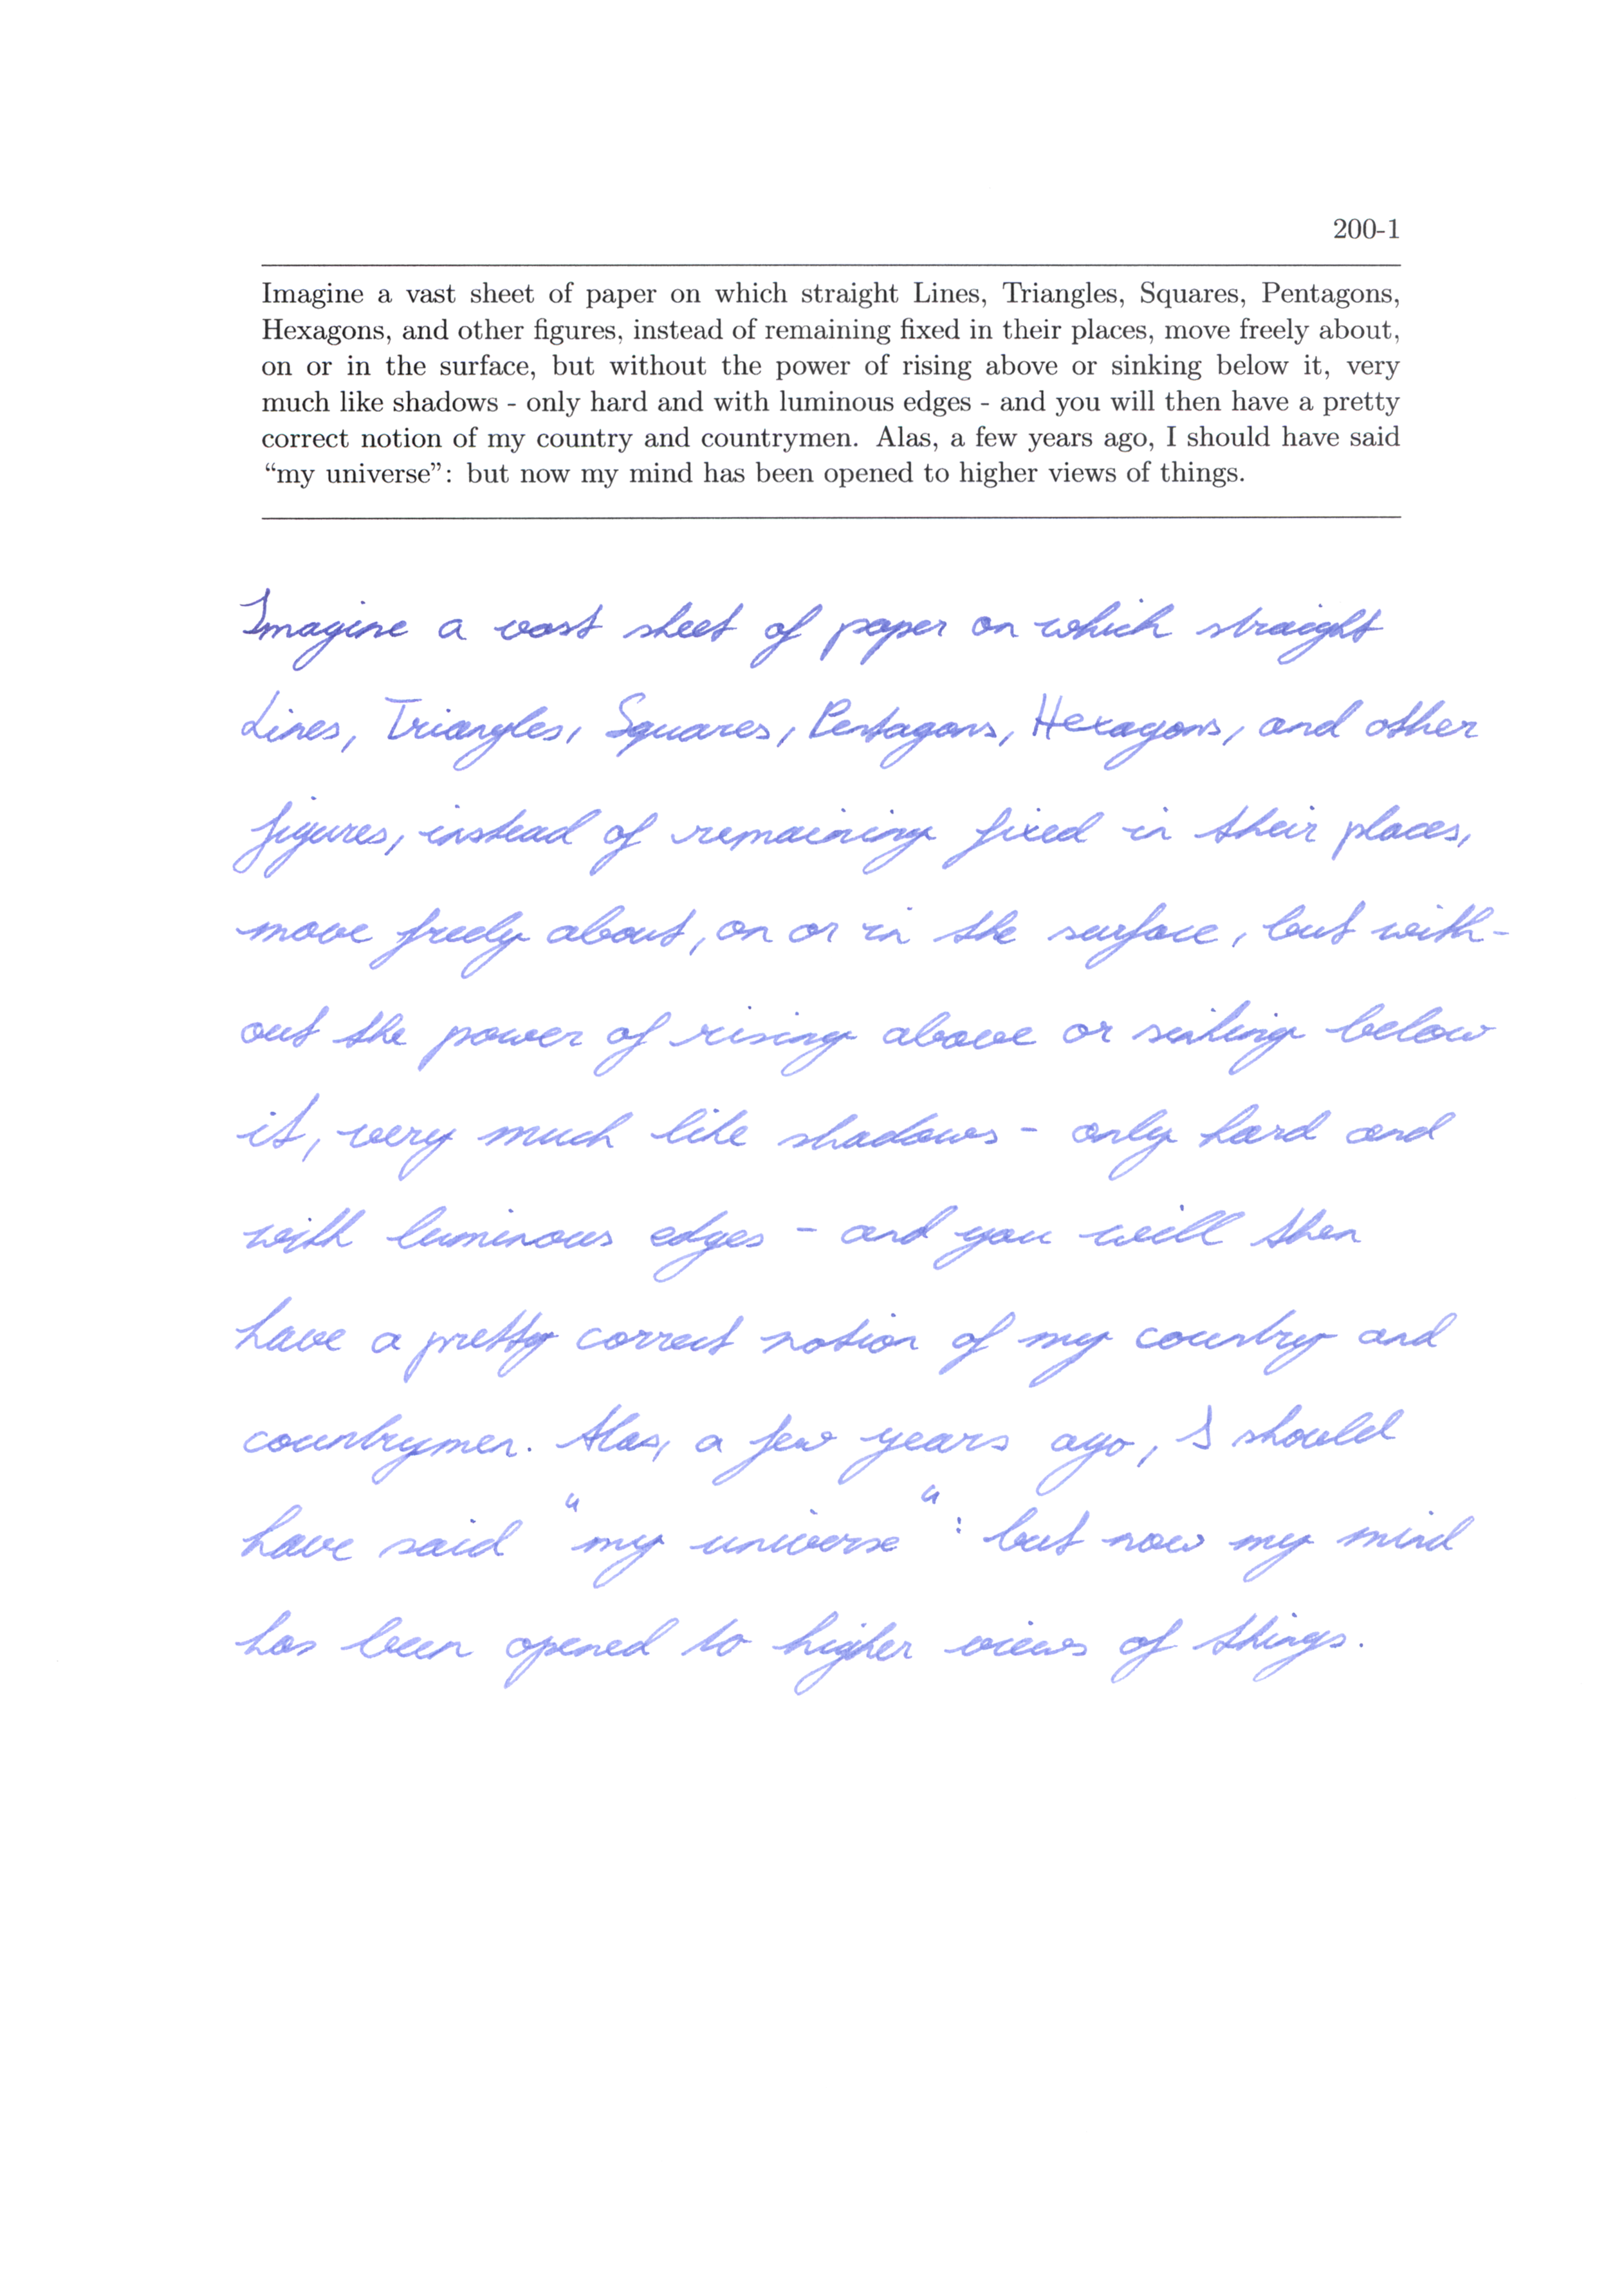 200-1
Imagine a vast sheet of paper on which straight Lines, Triangles, Squares, Pentagons,
Hexagons, and other figures, instead of remaining fixed in their places, move freely about,
on or in the surface, but without the power of rising above or sinking below it, very
much like shadows - only hard and with luminous edges - and you will then have a pretty
correct notion of my country and countrymen. Alas, a few years ago, I should have said
“my universe”: but now my mind has been opened to higher views of things.
Imagine a vast sheet of paper on which straight
Lines, Triangles, Squares, Pentagons, Hexagons, and other
figures, instead of remaining fixed in their places,
move freely about, on or in the surface, but with-
out the power of rising above or sinking below
it, very much like shadows - only hard and
with luminous edges - and you will then
have a pretty correct notion of my country and
countrymen. Alas, a few years ago, I should
have said "my universe": but now my mind
has been opened to higher views of things.